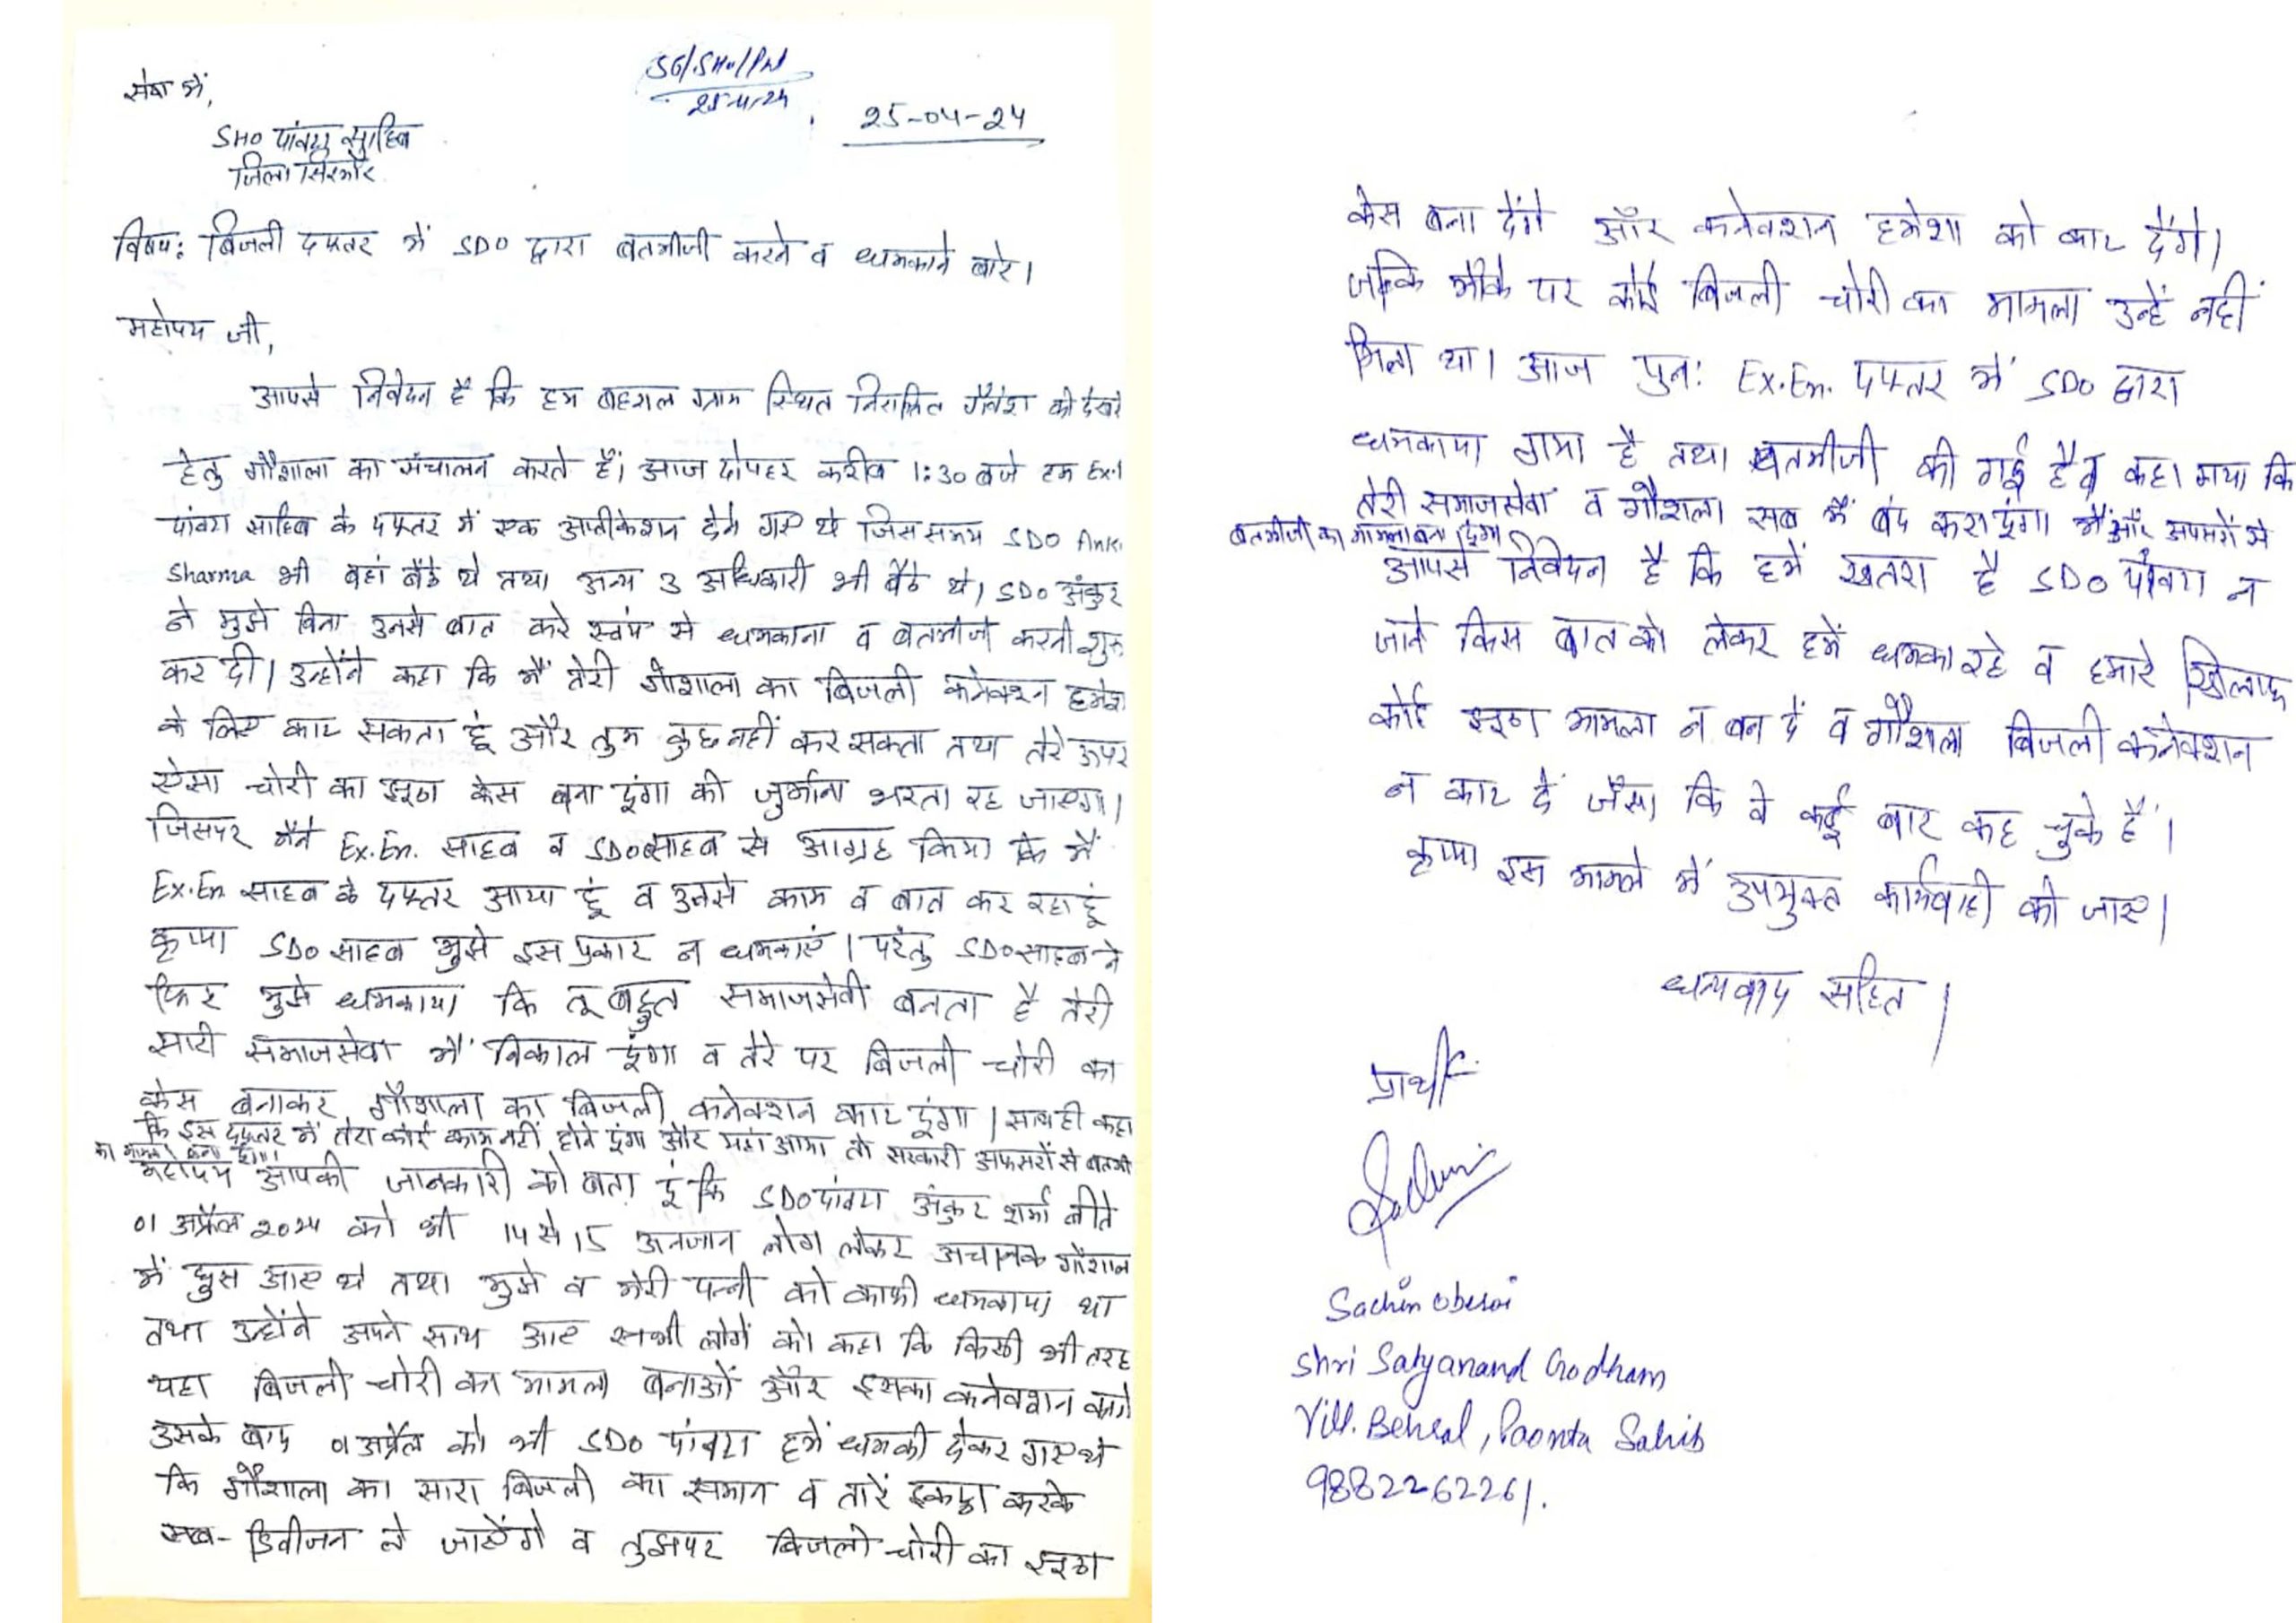 सेवा में,
SG/SHO/Pnt
25-4-24
25-04-24
SHO पांवटा साहिब
जिला सिरमौर
विषय: बिजली दफ्तर में SDO द्वारा बतमीजी करने व धमकाने बारे।
महोदय जी,
आपसे निवेदन है कि हम बहराल ग्राम स्थित निराश्रित गौवंश की देखरे
हेतु गौशाला का संचालन करते हैं। आज दोपहर करीब 1:30 बजे हम Ex.
पांवटा साहिब के दफ्तर में एक अप्लीकेशन देने गए थे जिस समय SDO Anku
Sharma भी वहां बैठे थे तथा अन्य 3 अधिकारी भी बैठे थे। SDO अंकुर
ने मुझे बिना उनसे बात करे स्वंय से धमकाना व बतमीजी करनी शुरू
कर दी। उन्होंने कहा कि मैं तेरी गौशाला का बिजली कनेक्शन हमेशा
के लिए काट सकता हूं और तुम कुछ नहीं कर सकता तथा तेरे ऊपर
ऐसा चोरी का झूठा केस बना दूंगा की जुर्माना भरता रह जाएगा।
जिसपर मैंने Ex.En. साहब व SDO साहब से आग्रह किया कि मैं
Ex.En साहब के दफ्तर आया हूं व उनसे काम व बात कर रहा हूं
कृप्या SDO साहब मुझे इस प्रकार न धमकाएं। परंतु SDO साहब ने
फिर मुझे धमकाया कि तू बहुत समाजसेवी बनता है तेरी
सारी समाजसेवा मैं निकाल दूंगा व तेरे पर बिजली चोरी का
केस बनाकर गौशाला का बिजली कनेक्शन काट दूंगा। साथ ही कहा
कि इस दफ्तर में तेरा कोई काम नहीं होने दूंगा और यहां आया तो सरकारी अफसरों से बतमी
का मामला बना दूंगा।
महोदय आपकी जानकारी को बता दूं कि SDO पांवटा अंकुर शर्मा बीते
01 अप्रैल 2024 को भी 14 से 15 अनजान लोग लेकर अचानक गौशाला
में घुस आए थे तथा मुझे व मेरी पत्नी को काफी धमकाया था
तथा उन्होंने अपने साथ आए सभी लोगों को कहा कि किसी भी तरह
यहा बिजली चोरी का मामला बनाओं और इसका कनेक्शन काटो
उसके बाद 01 अप्रैल को भी SDO पांवटा हमें धमकी देकर गए थे
कि गौशाला का सारा बिजली का समान व तारें इकट्ठा करके
सब-डिवीजन ले जाऐंगे व तुझपर बिजली चोरी का झूठा
केस बना देंगे और कनेक्शन हमेशा को काट देंगे।
जबकि मौके पर कोई बिजली चोरी का मामला उन्हें नहीं
मिला था। आज पुन: Ex.En. दफ्तर में SDO द्वारा
धमकाया गया है तथा बतमीजी की गई है व कहा गया कि
तेरी समाजसेवा व गौशाला सब मैं बंद करा दूंगा। मैं और अफसरों से
बतमीजी का मामला बना दूंगा
आपसे निवेदन है कि हमें खतरा है SDO पांवटा न
जाने किस बात को लेकर हमें धमका रहे व हमारे खिलाफ
कोई झूठा मामला न बन दें व गौशाला बिजली कनेक्शन
न काट दें जैसा कि वे कई बार कह चुके हैं।
कृप्या इस मामले में उपयुक्त कार्यवाही की जाए।
धन्यवाद सहित।
प्रार्थी
Sachin
Sachin Oberoi
Shri Satyanand Godham
Vill. Behral, Paonta Sahib
9882262261.